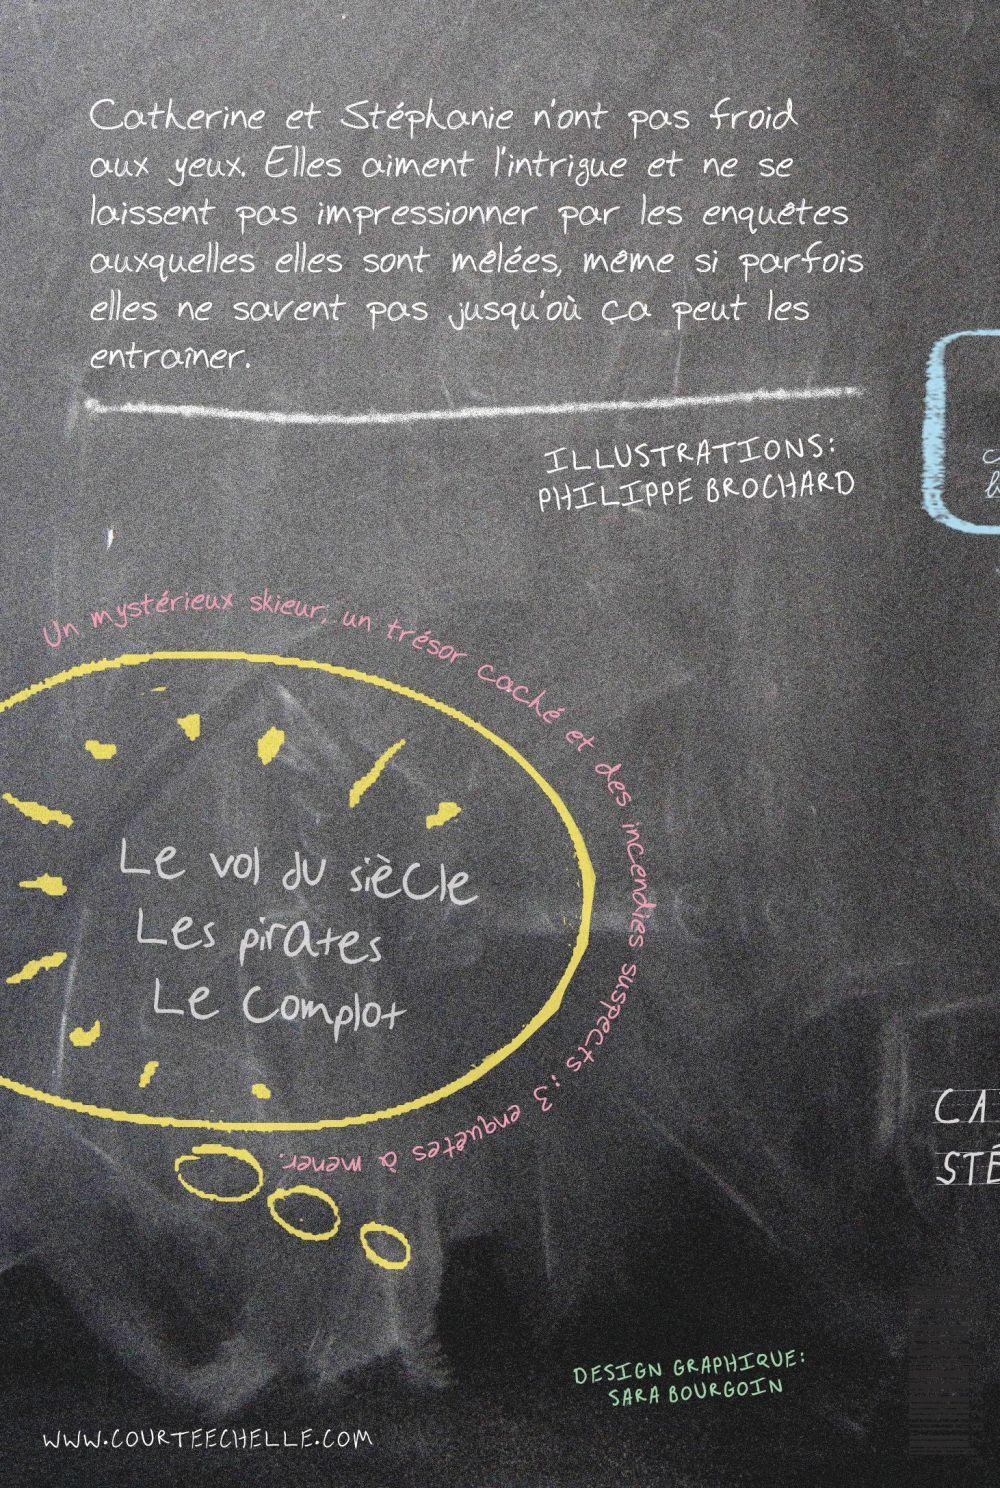 Catherine et Stéphanie n'ont pas froid
aux yeux. Elles aiment l'intrigue et ne se
laissent pas impressionner par les enquêtes
auxquelles elles sont mêlées, même si parfois
elles ne savent pas jusqu'où ça peut les
entraîner.
ILLUSTRATIONS:
PHILIPPE BROCHARD
Un mystérieux skieur, un trésor caché et des incendies suspects : 3 enquêtes à mener.
Le vol du siècle
Les pirates
Le Complot
CA
STÉ
DESIGN GRAPHIQUE:
SARA BOURGOIN
WWW.COURTEECHELLE.COM